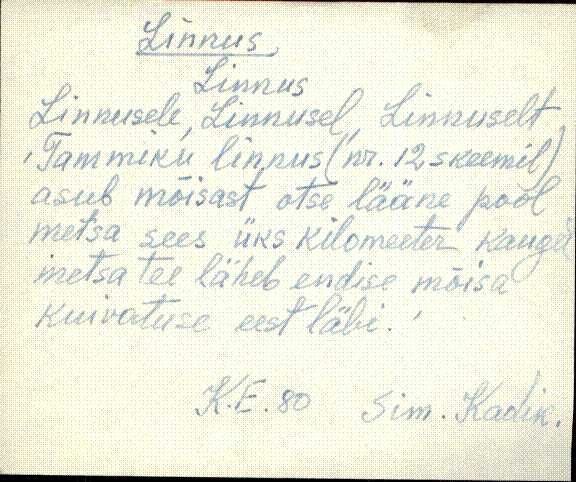 Linnus
Linnus
Linnusele, Linnusel, Linnuselt
'Tammiku linnus (nr. 12 skeemil)
asub mõisast otse lääne pool
metsa sees üks kilomeeter kaugel
metsa tee läheb endise mõisa
kuivatuse eest läbi.'
K.E. 80 Sim. Kadik.